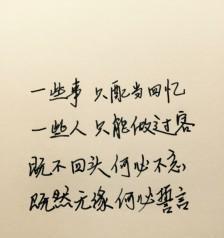 一些事 只配当回忆
一些人 只能做过客
既不回头 何必不忘
既然无缘 何必誓言